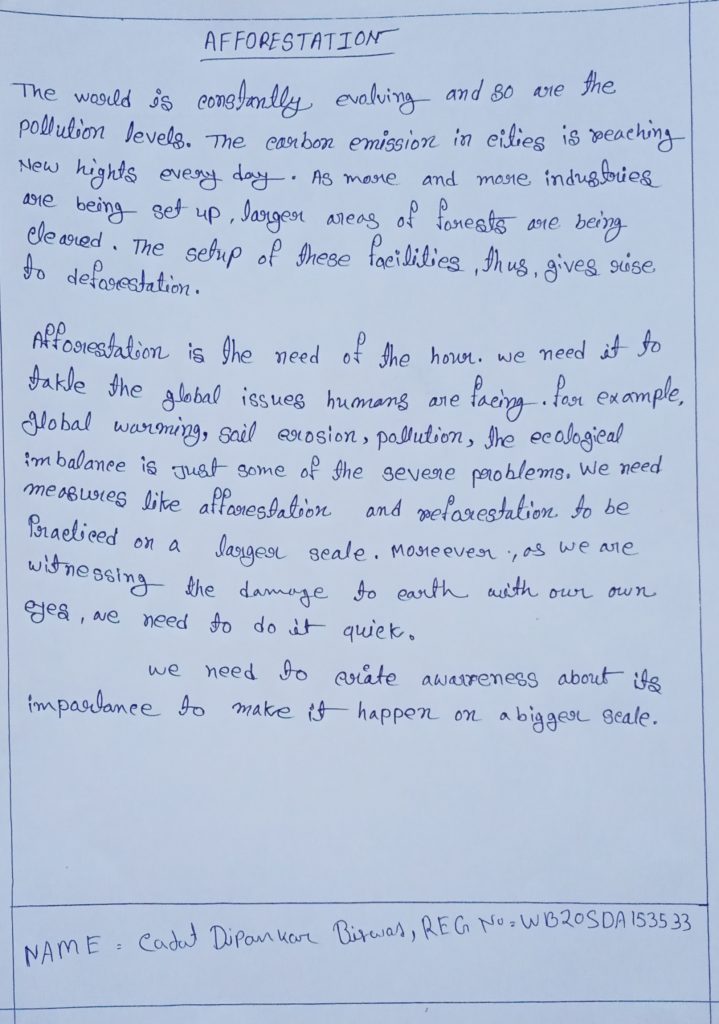 AFFORESTATION
The world is constantly evolving and so are the
pollution levels. The carbon emission in cities is reaching
New hights every day. As more and more industries
are being set up, larger areas of forests are being
cleared. The setup of these facilities, thus, gives rise
to deforestation.
Afforestation is the need of the hour. we need it to
takle the global issues humans are facing. for example,
global warming, soil erosion, pollution, the ecological
imbalance is Just some of the severe problems. We need
measures like afforestation and reforestation to be
Practiced on a larger scale. Moreever, as we are
witnessing the damage to earth with our own
eyes, we need to do it quick.
we need to create awarreness about its
importance to make it happen on a bigger scale.
NAME : Cadat Dipankar Biswas, REG No: WB20SDA153533